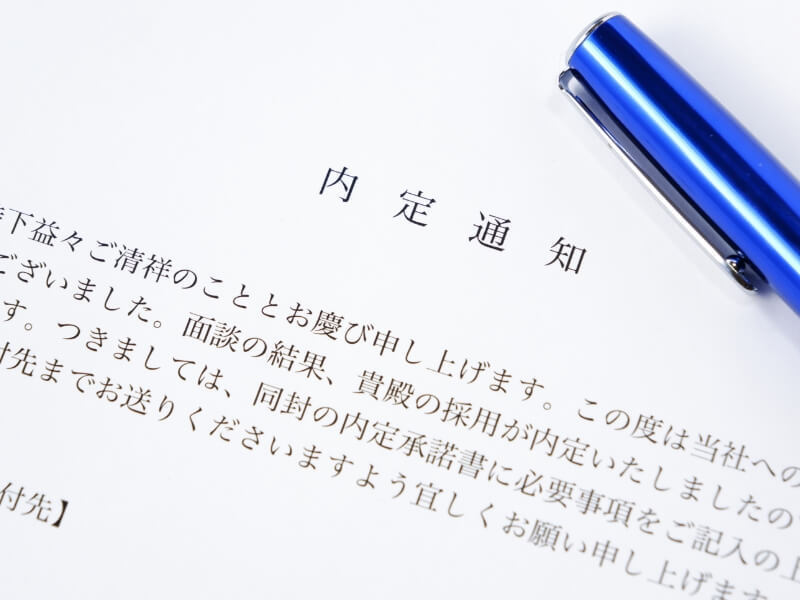 内定通知
下益々ご清祥のこととお慶び申し上げます。この度は当社への
ございました。面談の結果、貴殿の採用が内定いたしましたの
す。つきましては、同封の内定承諾書に必要事項をご記入の上
付先までお送りくださいますよう宜しくお願い申し上げます
付先】